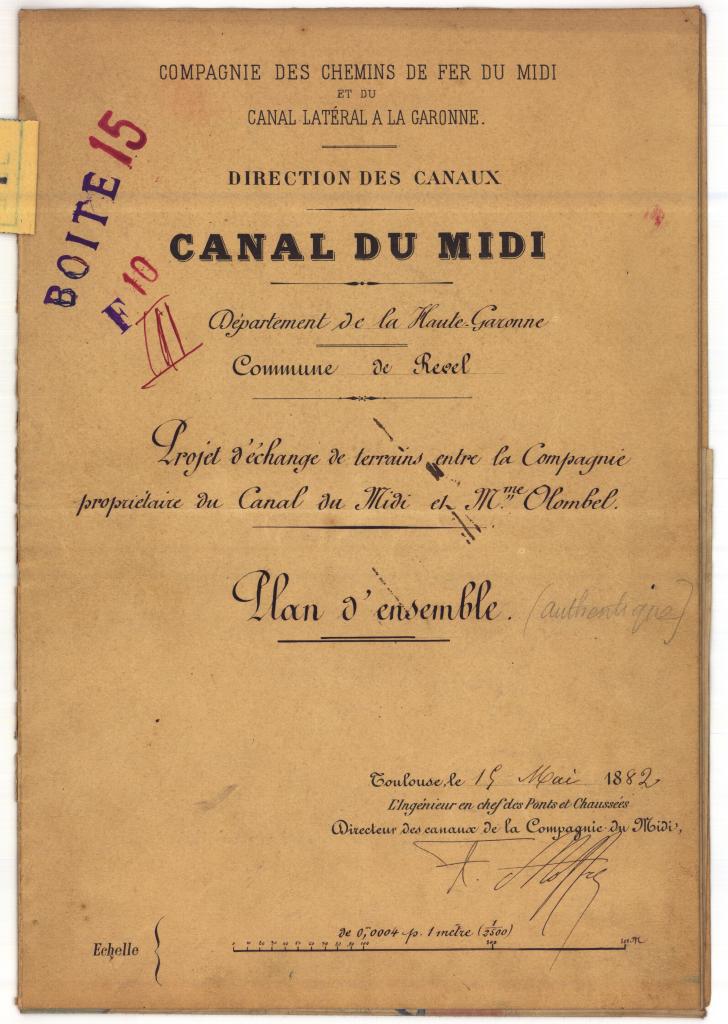 COMPAGNIE DES CHEMINS DE FER DU MIDI
ET DU
CANAL LATÉRAL A LA GARONNE.
DIRECTION DES CANAUX
BOITE 15
CANAL DU MIDI
F 10
III
Département de la Haute-Garonne
Commune de Revel
Projet d'échange de terrains entre la Compagnie
propriétaire du Canal du Midi et Mme Olombel.
Plan d'ensemble. (authentique)
Toulouse, le 15 Mai 1882
L'Ingénieur en chef des Ponts et Chaussées
Directeur des canaux de la Compagnie du Midi,
Echelle
de 0,0004 p. 1 mètre (1/2500)